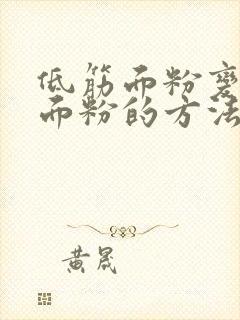 低筋面粉變
面粉的方法
黄晟